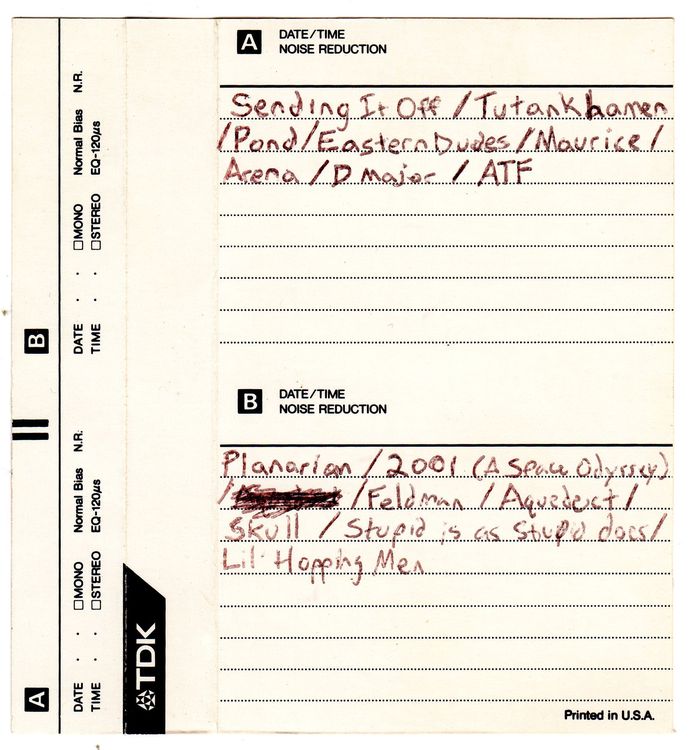 A DATE/TIME
NOISE REDUCTION
Sending It Off / Tutankhamen
/Pond/Eastern Dudes/Maurice/
Arena / D Major / ATF
B DATE/TIME
NOISE REDUCTION
Planarian / 2001 (A Space Odyssey)
/ /Feldman / Aqueduct/
Skull / Stupid is as stupid does/
Lil' Hopping Men
Printed in U.S.A.
A
B
DATE · · □MONO Normal Bias N.R.
TIME · · □STEREO EQ-120µs
DATE · · □MONO Normal Bias N.R.
TIME · · □STEREO EQ-120µs
TDK